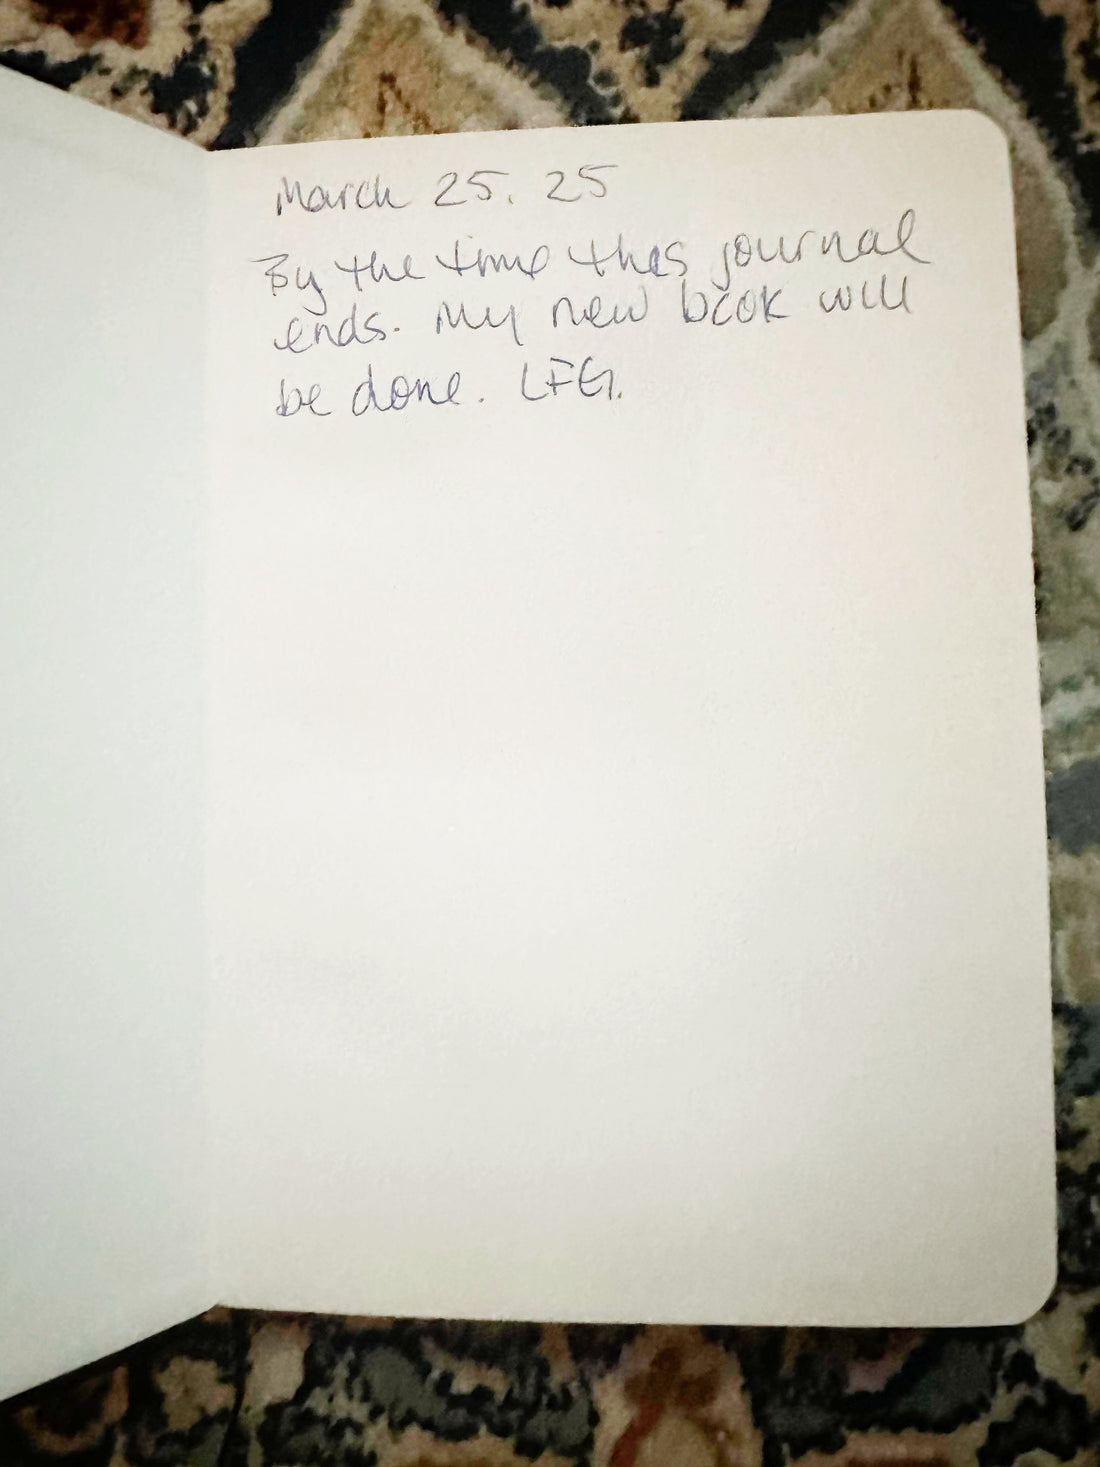 March 25. 25
By the time this journal
ends. My new book will
be done. LFG.